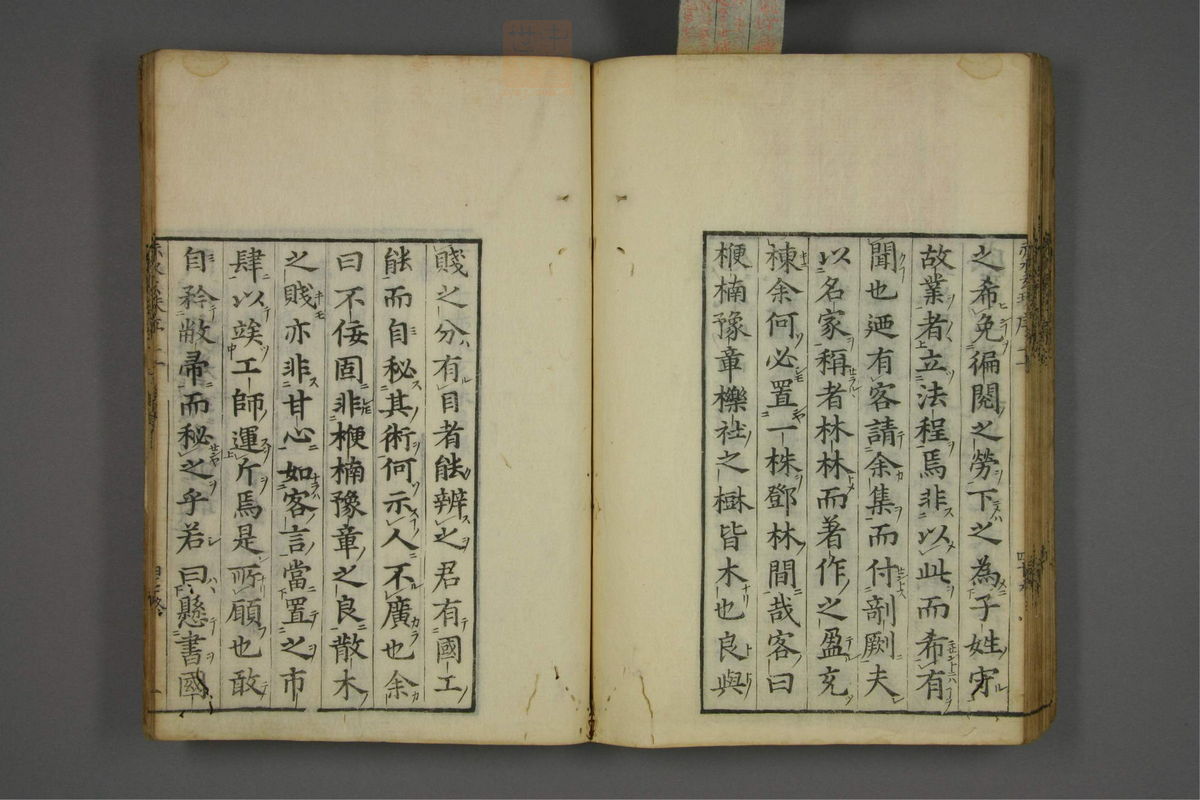 之希免徧閱之勞下之為子姓守
故業者立法程焉非以此而希有
聞也廼有客請余集而付剞劂夫
以名家稱者林林而著作之盈充
棟余何必置一株鄧林間哉客曰
楩楠豫章櫟社之樹皆木也良與
賤之分有目者能辨之君有國工
能而自秘其術何示人不廣也余
曰不佞固非楩楠豫章之良散木
之賤亦非甘心如客言當置之市
肆以竢工師運斤焉是所願也敢
自矜敝帚而秘之乎若曰懸書國